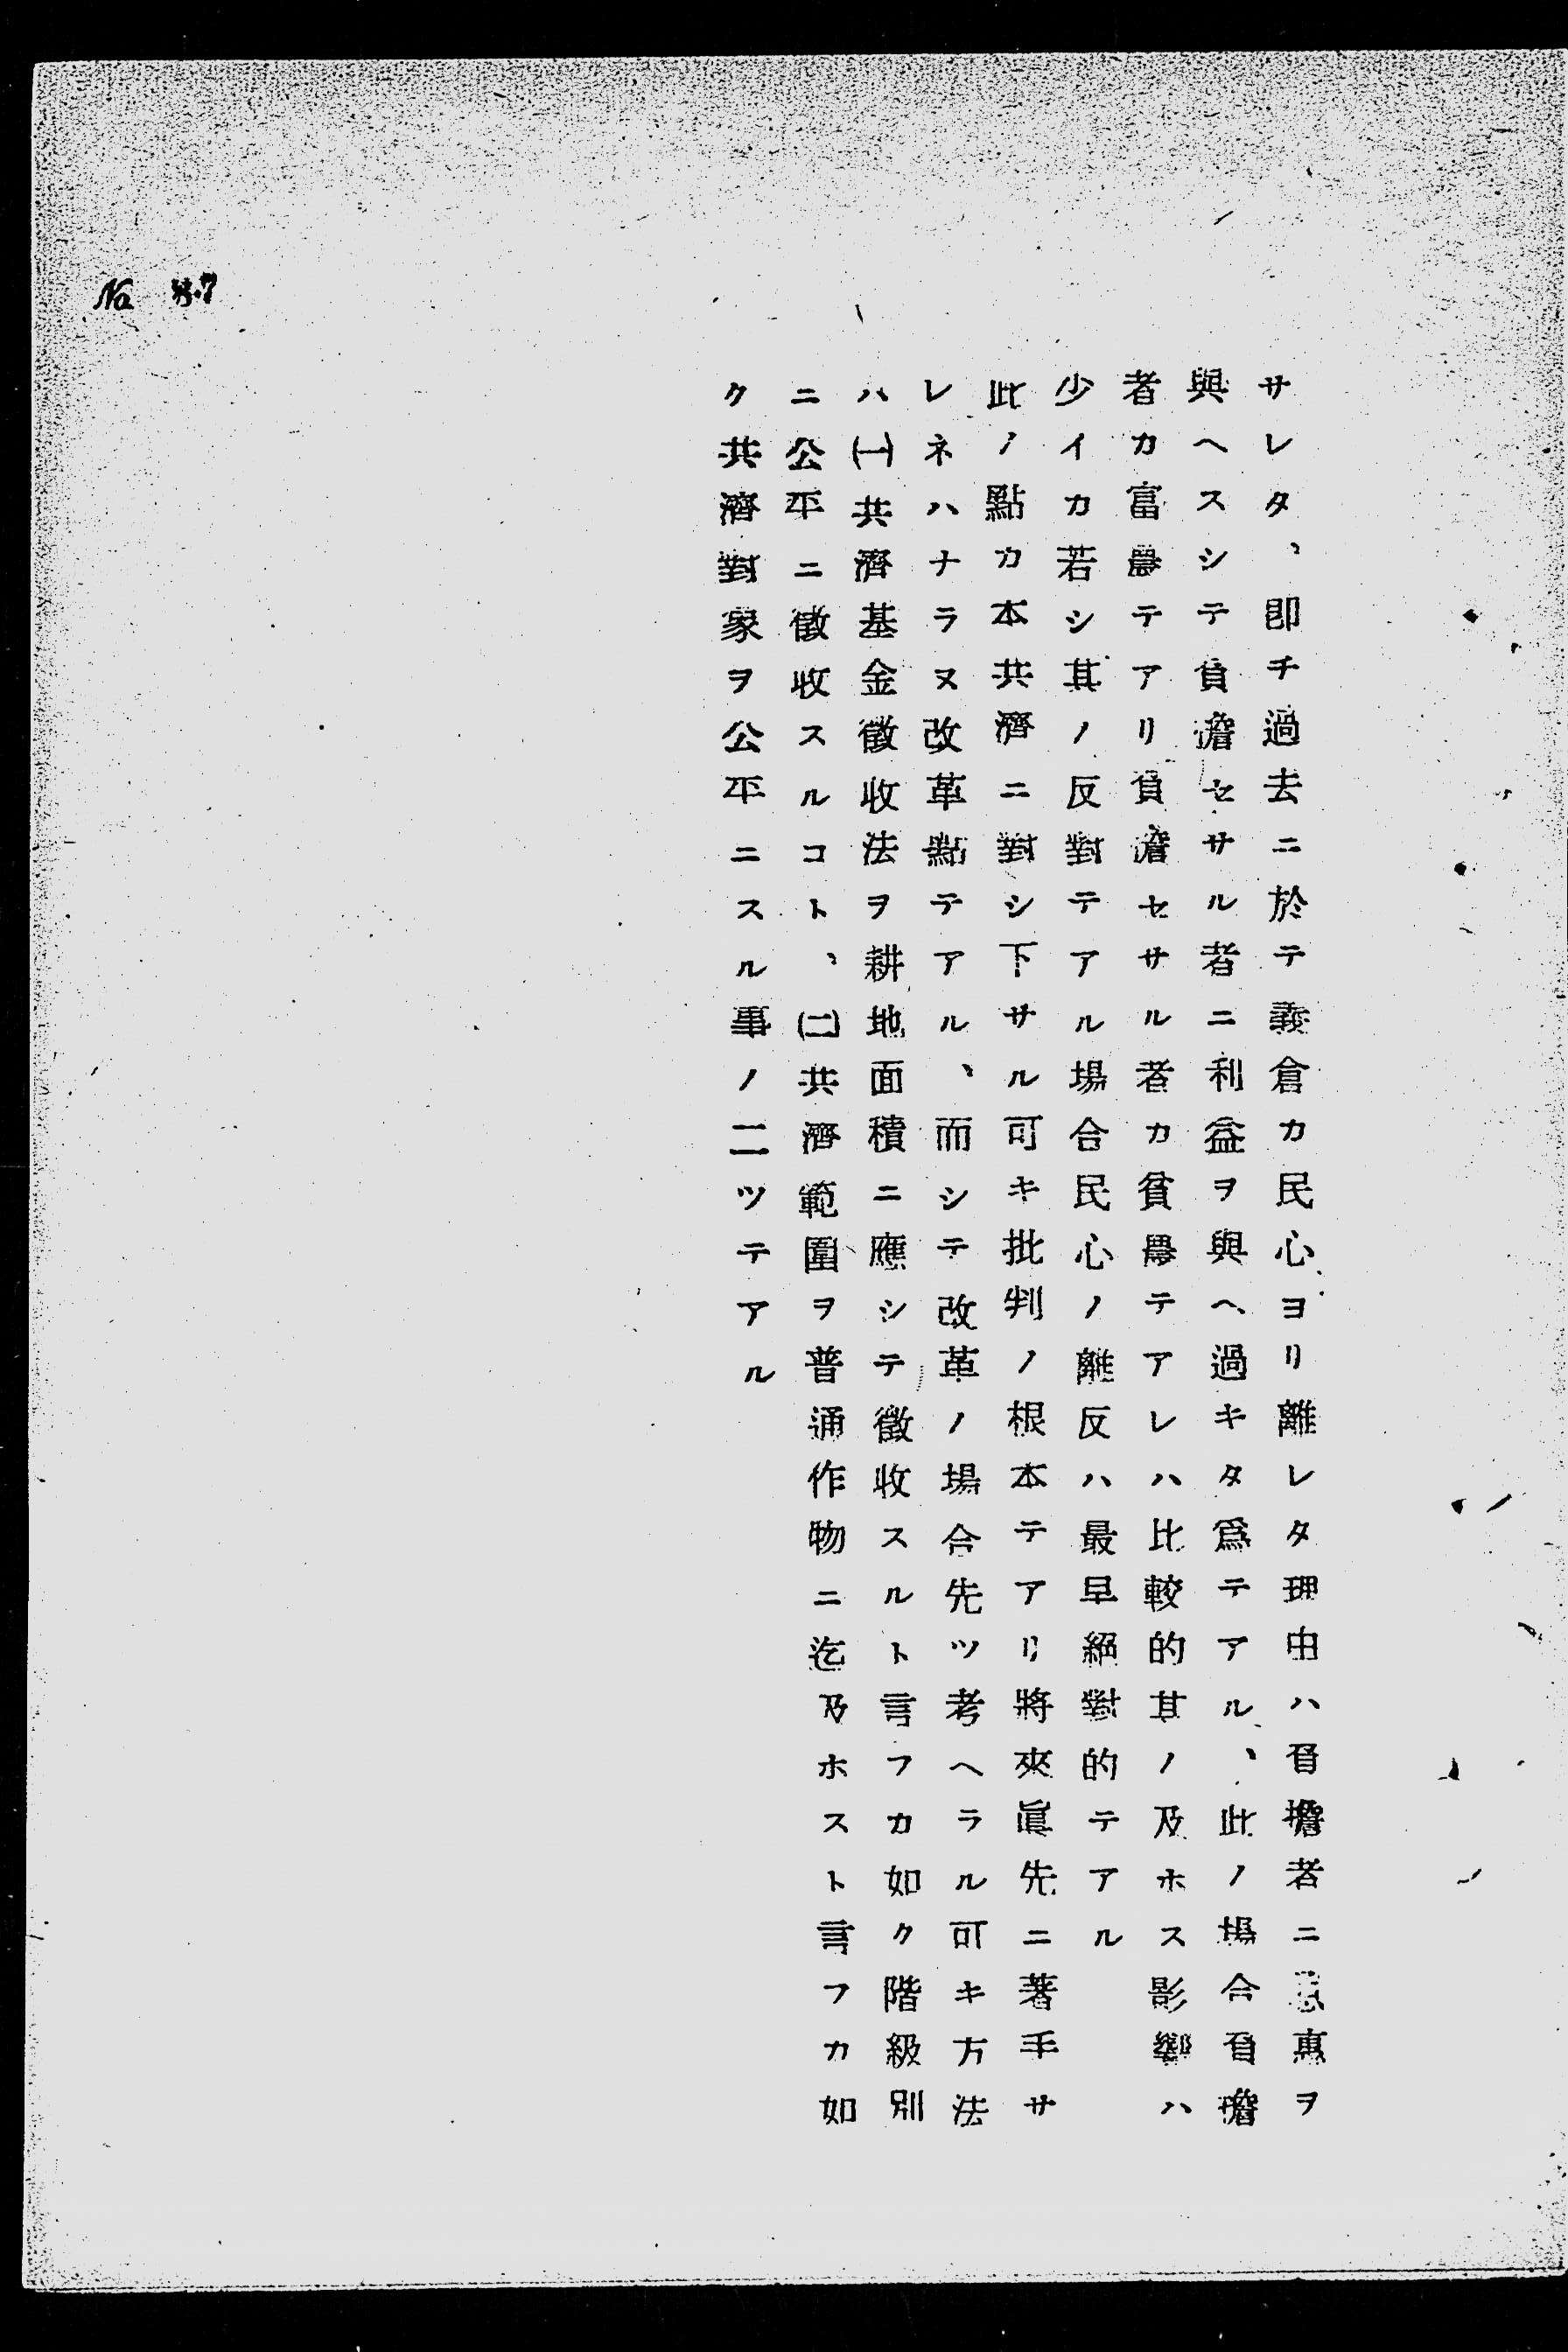 サレタ、卽チ過去ニ於テ義倉カ民心ヨリ離レタ理由ハ負擔者ニ恩惠ヲ
與ヘスシテ負擔セサル者ニ利益ヲ與ヘ過キタ爲テアル、此ノ場合負擔
者カ富農テアリ負擔セサル者カ貧農テアレハ比較的其ノ及ホス影響ハ
少イカ若シ其ノ反對テアル場合民心ノ離反ハ最早絕對的テアル
此ノ點カ本共濟ニ對シ下サル可キ批判ノ根本テアリ將來眞先ニ著手サ
レネハナラヌ改革點テアル、而シテ改革ノ場合先ツ考ヘラル可キ方法
ハ(一)共濟基金徵收法ヲ耕地面積ニ應シテ徵收スルト言フカ如ク階級別
ニ公平ニ徵收スルコト、(二)共濟範圍ヲ普通作物ニ迄及ホスト言フカ如
ク共濟對象ヲ公平ニスル事ノ二ツテアル
No